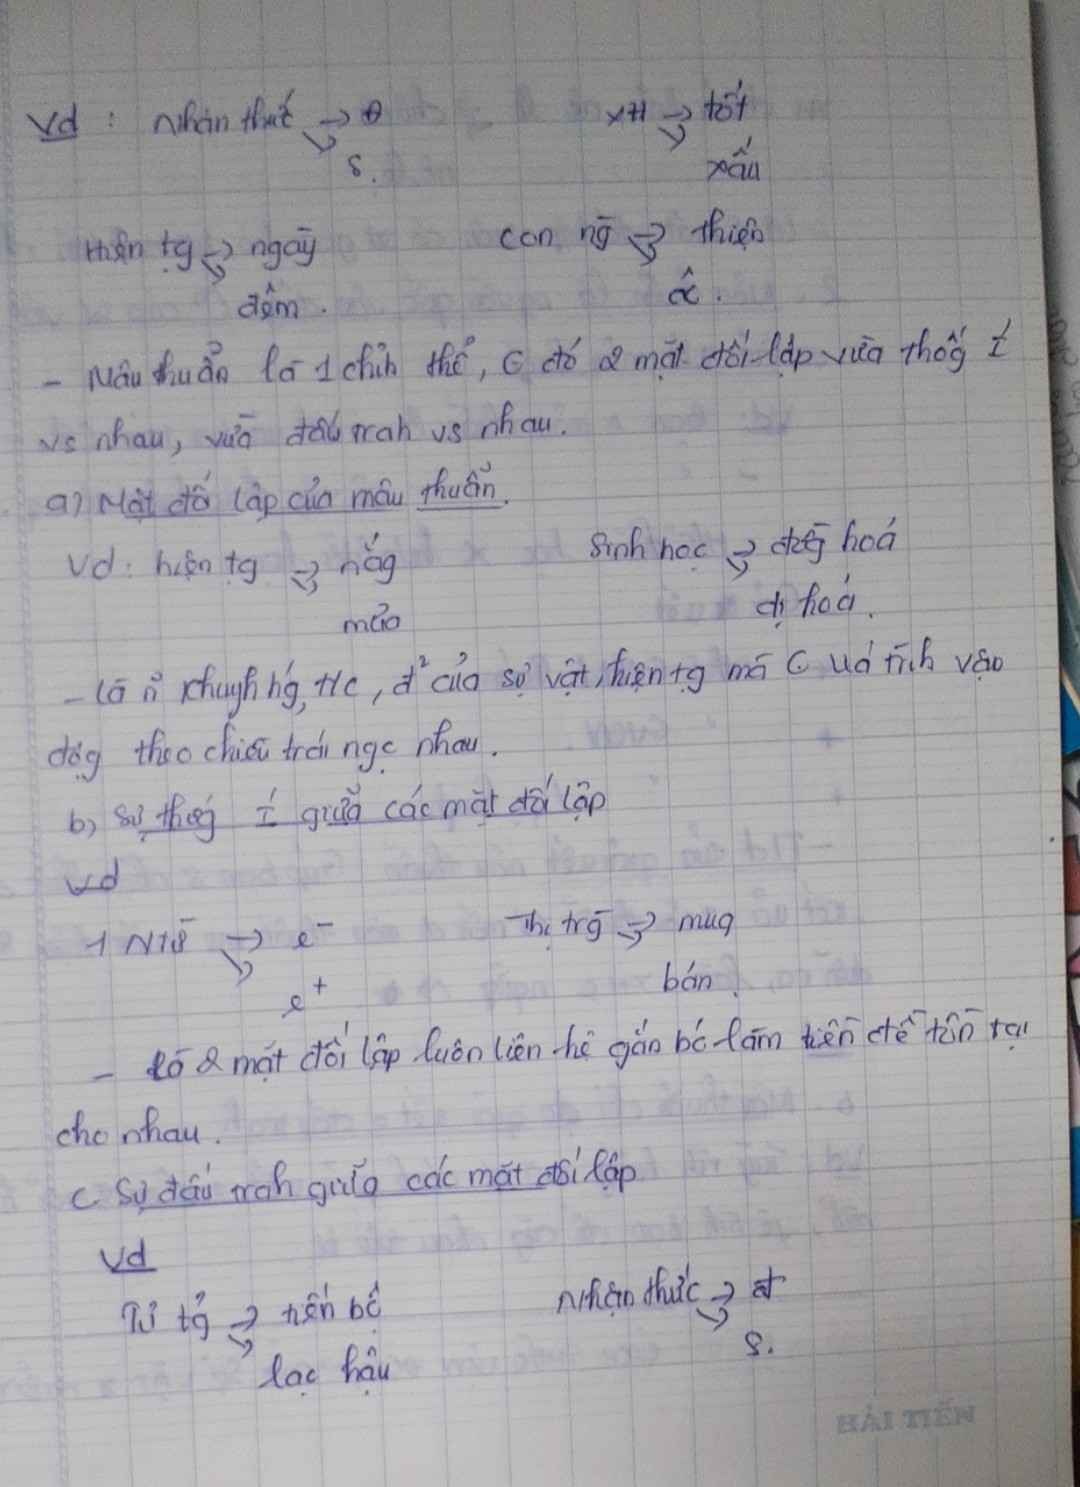 Vd : Nhận thức → Đ XH → tốt
S. xấu
Hiện tg → ngày con ng̅ → thiện
đêm. ác.
- Mâu thuẫn là 1 chỉnh thể, G đó 2 mặt đối lập vừa thốg I
vs nhau, vừa đấu trah vs nhau.
a) Mặt đối lập của mâu thuẫn.
Vd: hiện tg → nắg Sinh học → đồg hoá
mưa dị hoá.
- là n~ khuyh hg, t/c, đ² của sự vật, hiện tg mà G quá trìh vận
độg theo chiều trái ngc nhau.
b) Sự thốg I giữa các mặt đối lập
Vd
1 NTử → e⁻ Thị trg → mua
e⁺ bán.
- là 2 mặt đối lập luôn liên hệ gắn bó làm tiền đề tồn tại
cho nhau.
c. Sự đấu trah giữa các mặt đối lập
Vd
Tư tg → tiến bộ Nhận thức → Đ
lạc hậu S.
HẢI TIẾN